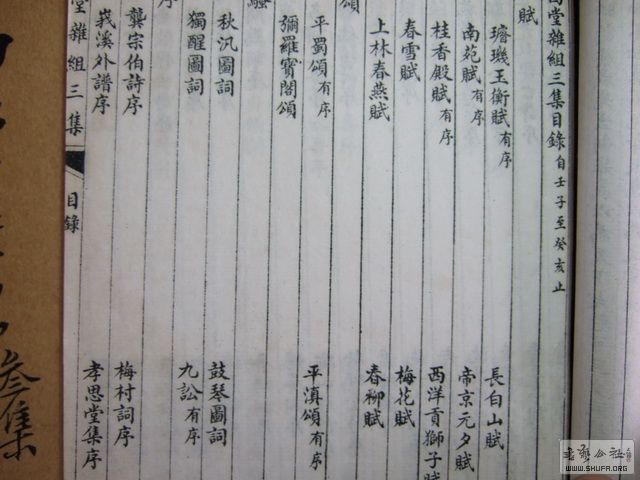 堂雜組三集目錄 自壬子至癸亥止
賦
璿璣玉衡賦 有序 長白山賦
南苑賦 有序 帝京元夕賦
桂香殿賦 有序 西洋貢獅子賦
春雪賦 梅花賦
上林春燕賦 春柳賦
頌
平蜀頌 有序 平滇頌 有序
彌羅寶閣頌
騷
秋汎圖詞 鼓琴圖詞
獨醒圖詞 九訟 有序
序
龔宗伯詩序 梅村詞序
莪溪外譜序 孝思堂集序
堂雜組三集 目錄
叄集
雅藝公社
WWW.SHUFA.ORG